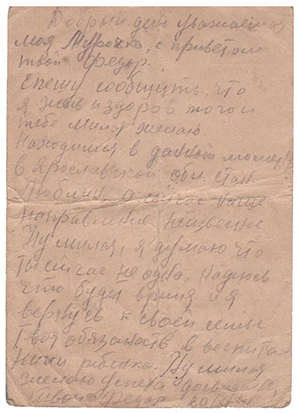 Добрый день уважаемая
моя Мурочка, с приветом
твой Федор.
Спешу сообщить, что
я жив и здоров того и
тебе милая желаю.
Находимся в данной момент
в Ярославской обл. стан
а сейчас наше
направление неизвестно
Ну милая, я думаю что
ты сейчас не одна. Надеюсь
что будет время и я
вернусь к своей семье
Твоя обязанность в воспита
нии ребенка. Ну милая
желаю успеха
твой Федор